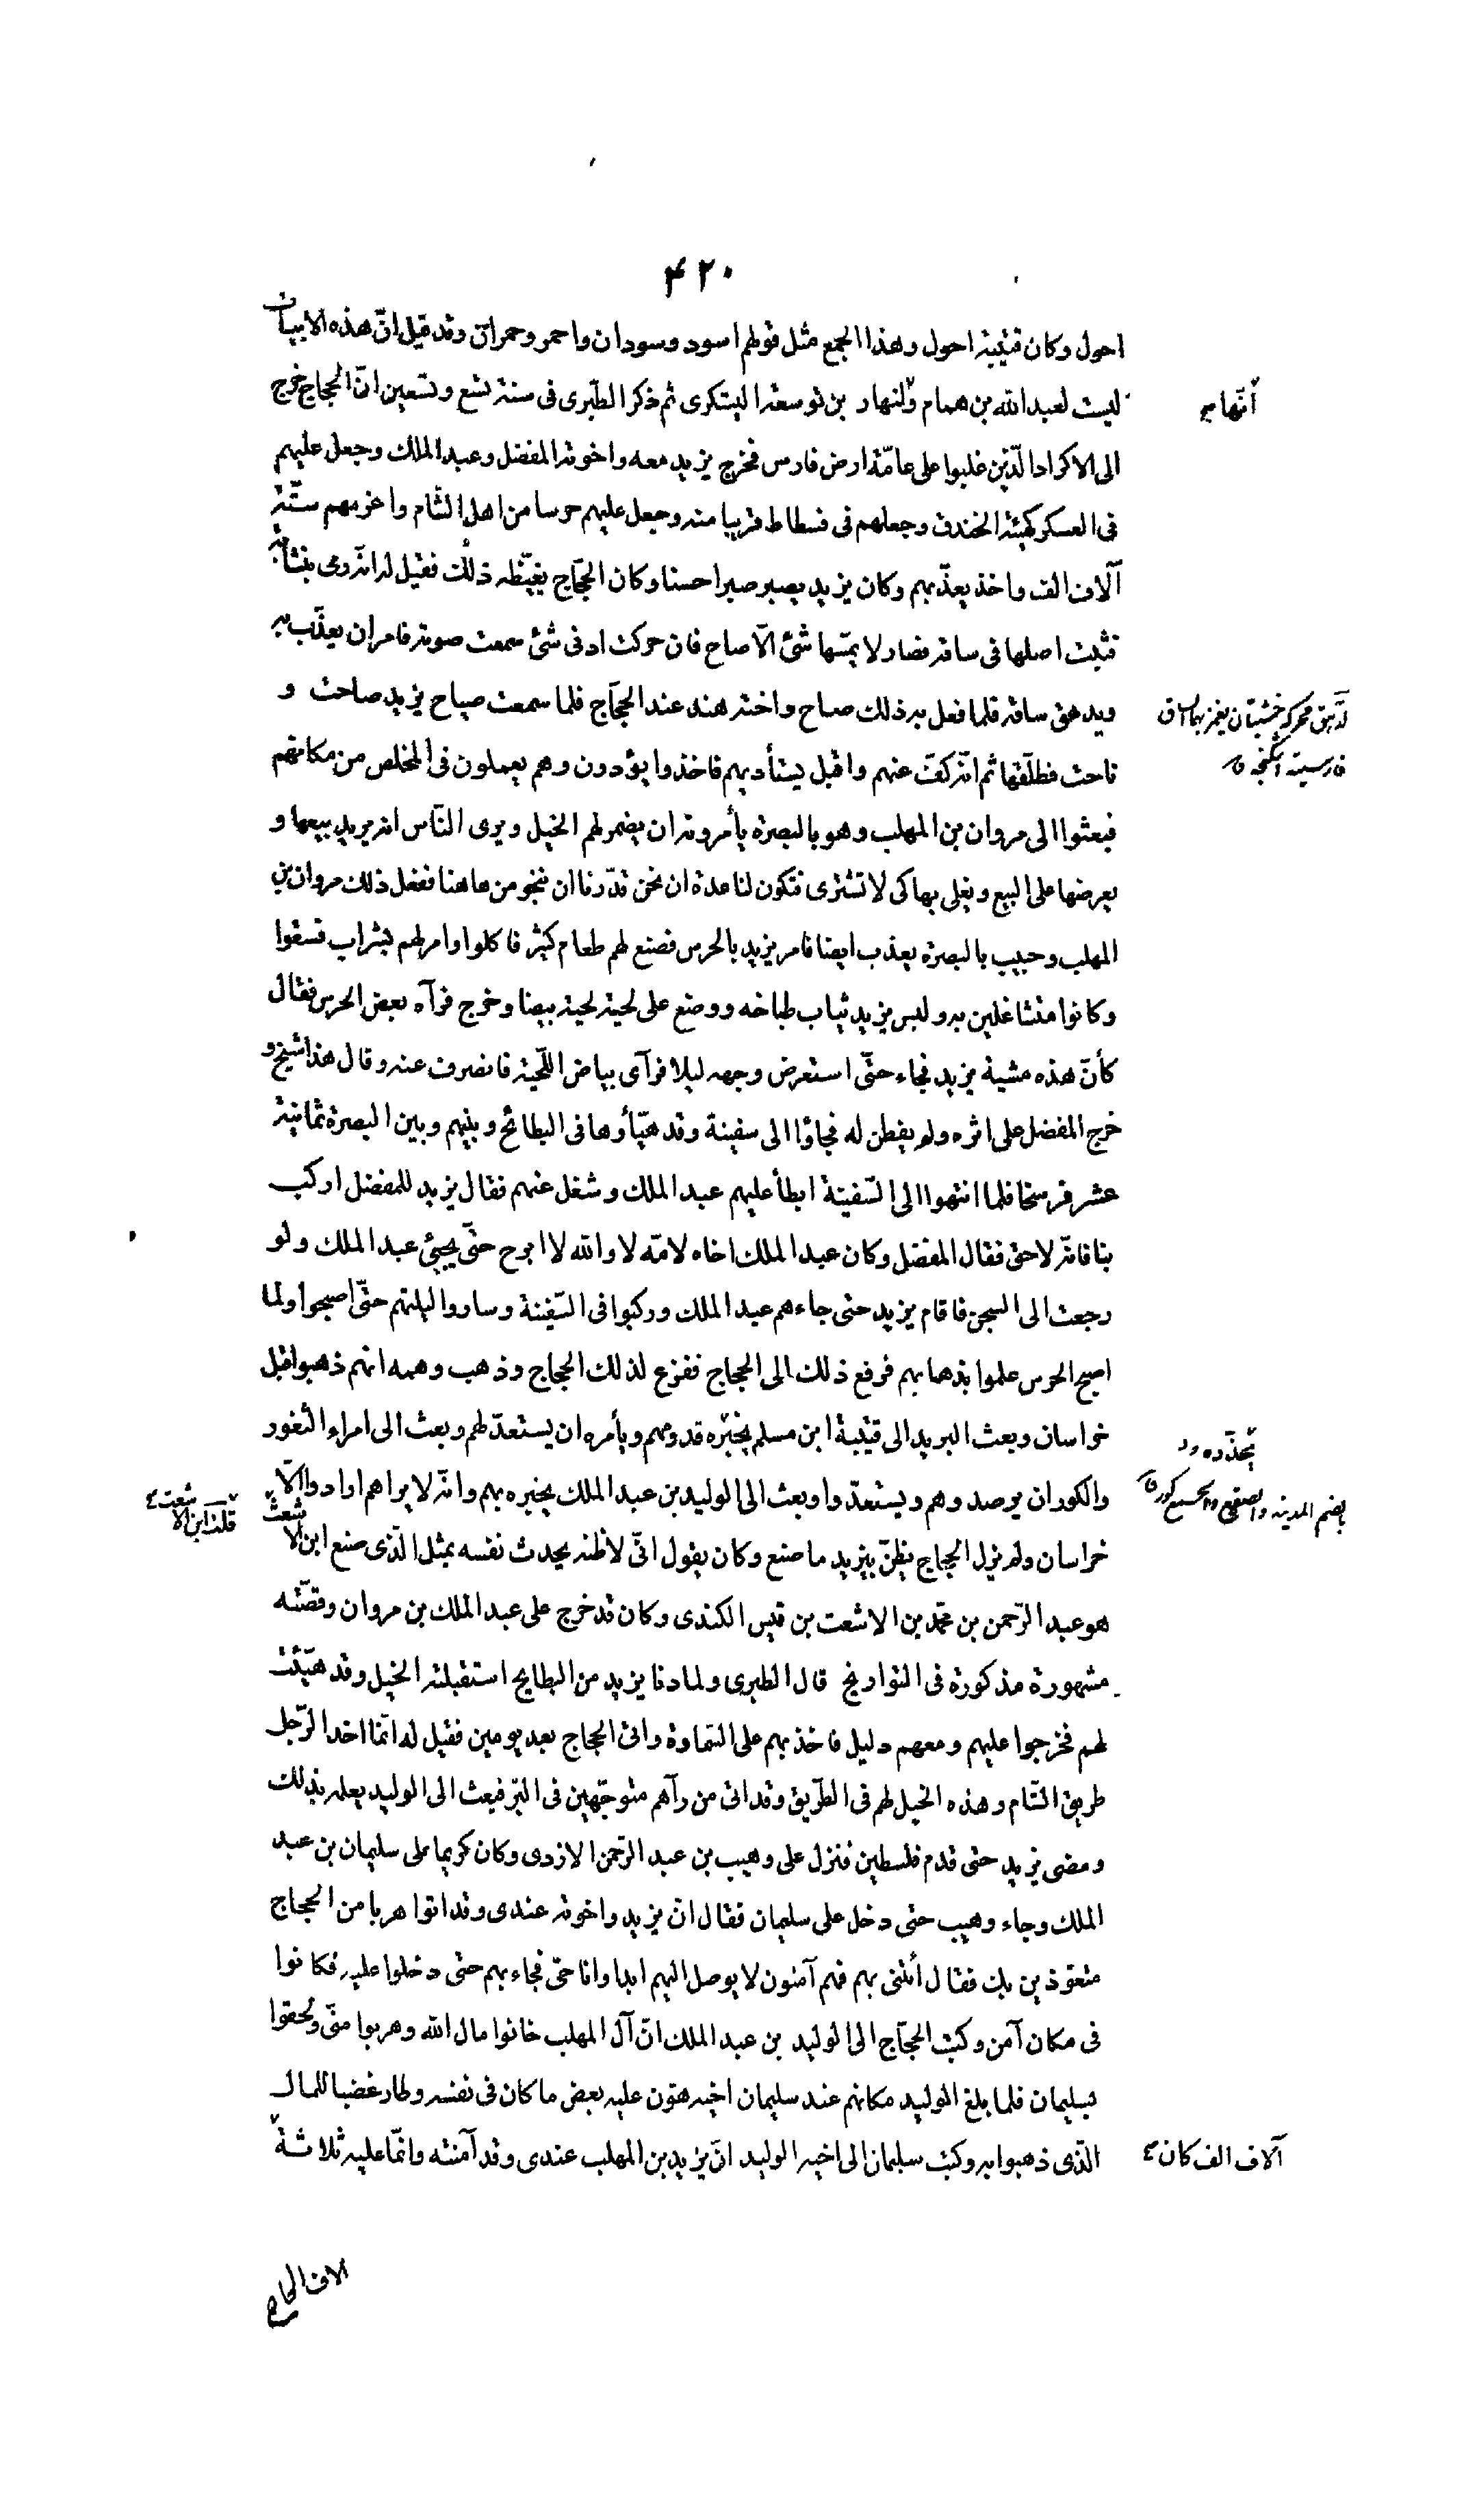 ۴۲۰
احول وكان قتيبة احول وهذا الجمع مثل قولهم اسود وسودان واحمر وحمران وقد قيل انّ هذه الابيات
ليست لعبد الله بن همام ولنهار بن توسعة اليشكرى ثم ذكر الطّبرى فى سنة تسع وتسعين انّ الحجاج خرج
انّها صح
الى الاكراد الّذين غلبوا على عامّة ارض فارس فخرج يزيد معه واخوته المفضل وعبد الملك وجعل عليهم
فى العسكر كهيئة الخندق وجعلهم فى فسطاط قريبا منه وجعل عليهم حرسا من اهل الشام واغرمهم ستّة
آلاف الف واخذ يعذّبهم وكان يزيد يصبر صبرا حسنا وكان الحجّاج يغيّظه ذلك فقيل له انّه رمى بنشابة
فثبت اصلها فى ساقه فصار لا يمسّها شئ الّا صاح فان حركت ادنى شئ سمعت صوته فامر ان يعذّب به
ويدهق ساقه فلما فعل به ذلك صاح واخته هند عند الحجّاج فلما سمعت صياح يزيد صاحت و
الدهق محركة خشبتان يغمز بهما الساق
فارسيته اشكنجه ق
ناحت فطلّقها ثم انّه كفّ عنهم واقبل يستأديهم فاخذوا يؤدون وهم يعملون فى المخلص من مكانهم
فبعثوا الى مروان بن المهلب وهو بالبصرة يأمرونه ان يضمر لهم الخيل ويرى النّاس انه يريد بيعها و
يعرضها على البيع ويغلى بها كى لا تشترى فتكون لنا عدة ان نحن قدّرنا ان ننجو من هاهنا ففعل ذلك مروان بن
المهلب وحبيب بالبصرة يعذب ايضا فامر يزيد بالحرس فصنع لهم طعام كثير فاكلوا وامر لهم بشراب فسقوا
وكانوا متشاغلين به ولبس يزيد ثياب طباخه ووضع على لحيته لحية بيضا وخرج فرآه بعض الحرس فقال
كأنّ هذه مشية يزيد فجاء حتّى استعرض وجهه ليلا فرآى بياض اللّحية فانصرف عنه وقال هذا شيخ و
خرج المفضل على اثره ولم يفطن له فجاؤا الى سفينة وقد هيّأوها فى البطائح وبينهم وبين البصرة ثمانية
عشر فرسخا فلما انتهوا الى السّفينة ابطأ عليهم عبد الملك وشغل عنهم فقال يزيد للمفضل اركب
بنا فانّه لاحق فقال المفضل وكان عبد الملك اخاه لامّه لا والله لا ابرح حتّى يجيئ عبد الملك ولو
رجعت الى السجن فاقام يزيد حتى جاءهم عبد الملك وركبوا فى السّفينة وساروا ليلتهم حتّى اصبحوا ولما
اصبح الحرس علموا بذهابهم فرفع ذلك الى الحجاج ففزع لذلك الحجاج وذهب وهمه انهم ذهبوا قبل
خراسان وبعث البريد الى قتيبة ابن مسلم يخبّره قدومهم ويأمره ان يستعدّ لهم وبعث الى امراء الثغور
يحذّره
والكور ان يرصدوهم ويستعدّوا وبعث الى الوليد بن عبد الملك يخبره بهم وانّه لا يراهم ارادوا الّا
بضم المدينه والصقع والجمع كور ق
خراسان ولم يزل الحجاج يظنّ بيزيد ما صنع وكان يقول انّى لاظنه يحدث نفسه بمثل الّذى صنع ابن الاشعث
قلت ابن الاشعث
هو عبد الرّحمن بن محمّد بن الاشعت بن قيس الكندى وكان قد خرج على عبد الملك بن مروان وقصّته
مشهورة مذكورة فى التواريخ قال الطبرى ولما دنا يزيد من البطايح استقبلته الخيل وقد هيّئت
لهم فخرجوا عليهم ومعهم دليل فاخذ بهم على السّماوة واتى الحجاج بعد يومين فقيل له انّما اخذ الرّجل
طريق الشّام وهذه الخيل لهم فى الطّريق وقد اتى من رآهم متوجّهين فى البّر فبعث الى الوليد يعلمه بذلك
ومضى يزيد حتى قدم فلسطين فنزل على وهيب بن عبد الرّحمن الازدى وكان كريما على سليمان بن عبد
الملك وجاء وهيب حتى دخل على سليمان فقال انّ يزيد واخوته عندى وقد اتوا هربا من الحجاج
متعوّذين بك فقال أئتنى بهم فهم آمنون لا يوصل اليهم ابدا وانا حىّ فجاء بهم حتى دخلوا عليه فكانوا
فى مكان آمن وكتب الحجّاج الى الوليد بن عبد الملك انّ آل المهلب خانوا مال الله وهربوا منّى ولحقوا
بسليمان فلما بلغ الوليد مكانهم عند سليمان اخيه هوّن عليه بعض ما كان فى نفسه وطار غضبا للمال
الّذى ذهبوا به وكتب سليمان الى اخيه الوليد انّ يزيد بن المهلب عندى وقد آمنته وانّما عليه ثلاثة
آلاف الف كان